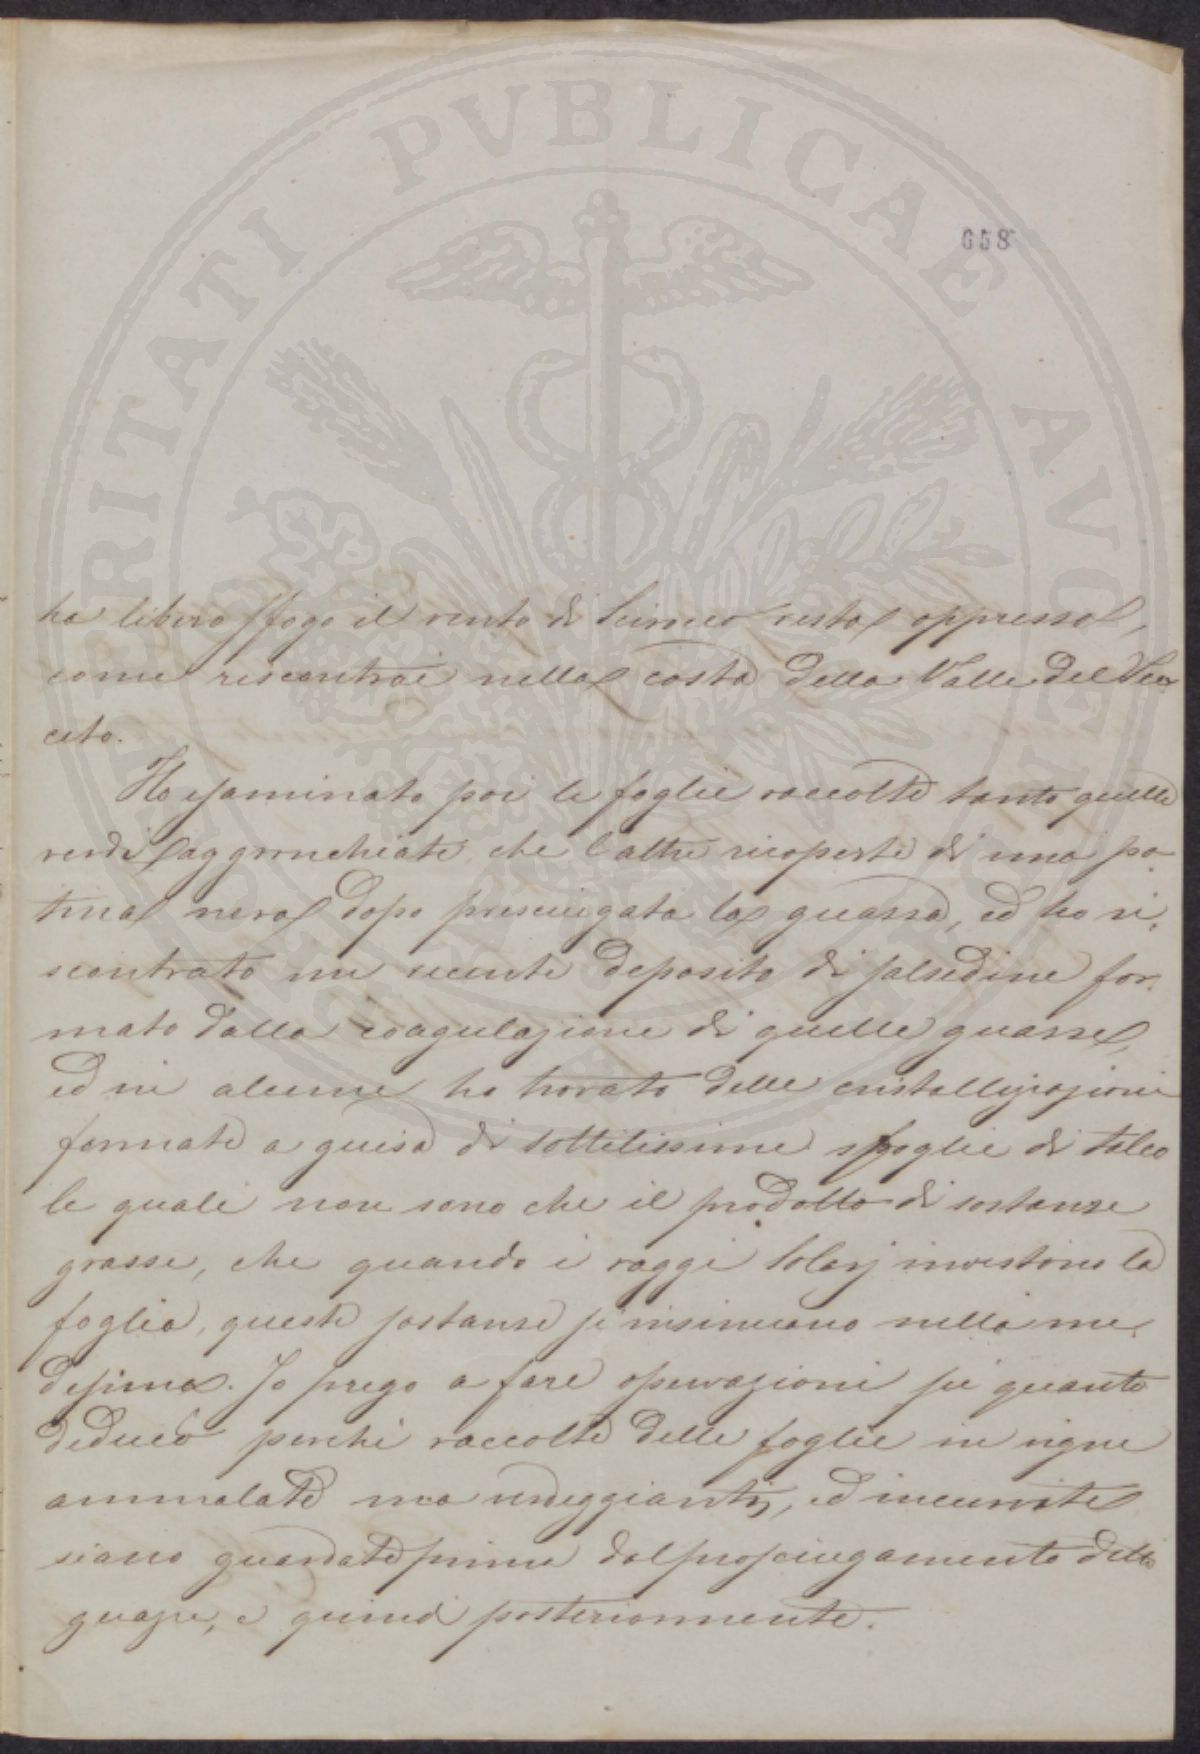 PROSPERITATI PVBLICAE AVGENDAE
658
ha libero sfogo il vento di Scirocco resta oppressa,
come riscontrai nella costa della Valle del
ceto.
Ho esaminato poi le foglie raccolte tanto quelle
verdi saggrinchiate che l'altre ricoperte di una pa-
tina nera dopo prosciugata la guazza, ed ho ri-
scontrato un recente deposito di salsedine for-
mato dalla coagulazione di quelle guazze,
ed in alcune ho trovato delle cristallizzazioni
formate a guisa di sottilissime sfoglie di talco
le quali non sono che il prodotto di sostanze
grasse, che quando i raggi solarj investono la
foglia, queste sostanze si insinuano nella me-
desima. Io prego a fare osservazioni su quanto
deduco perchè raccolte delle foglie in vigne
ammalate ma verdeggianti, ed incurvite
siano guardate prima del prosciugamento della
guazza, e quindi posteriormente.